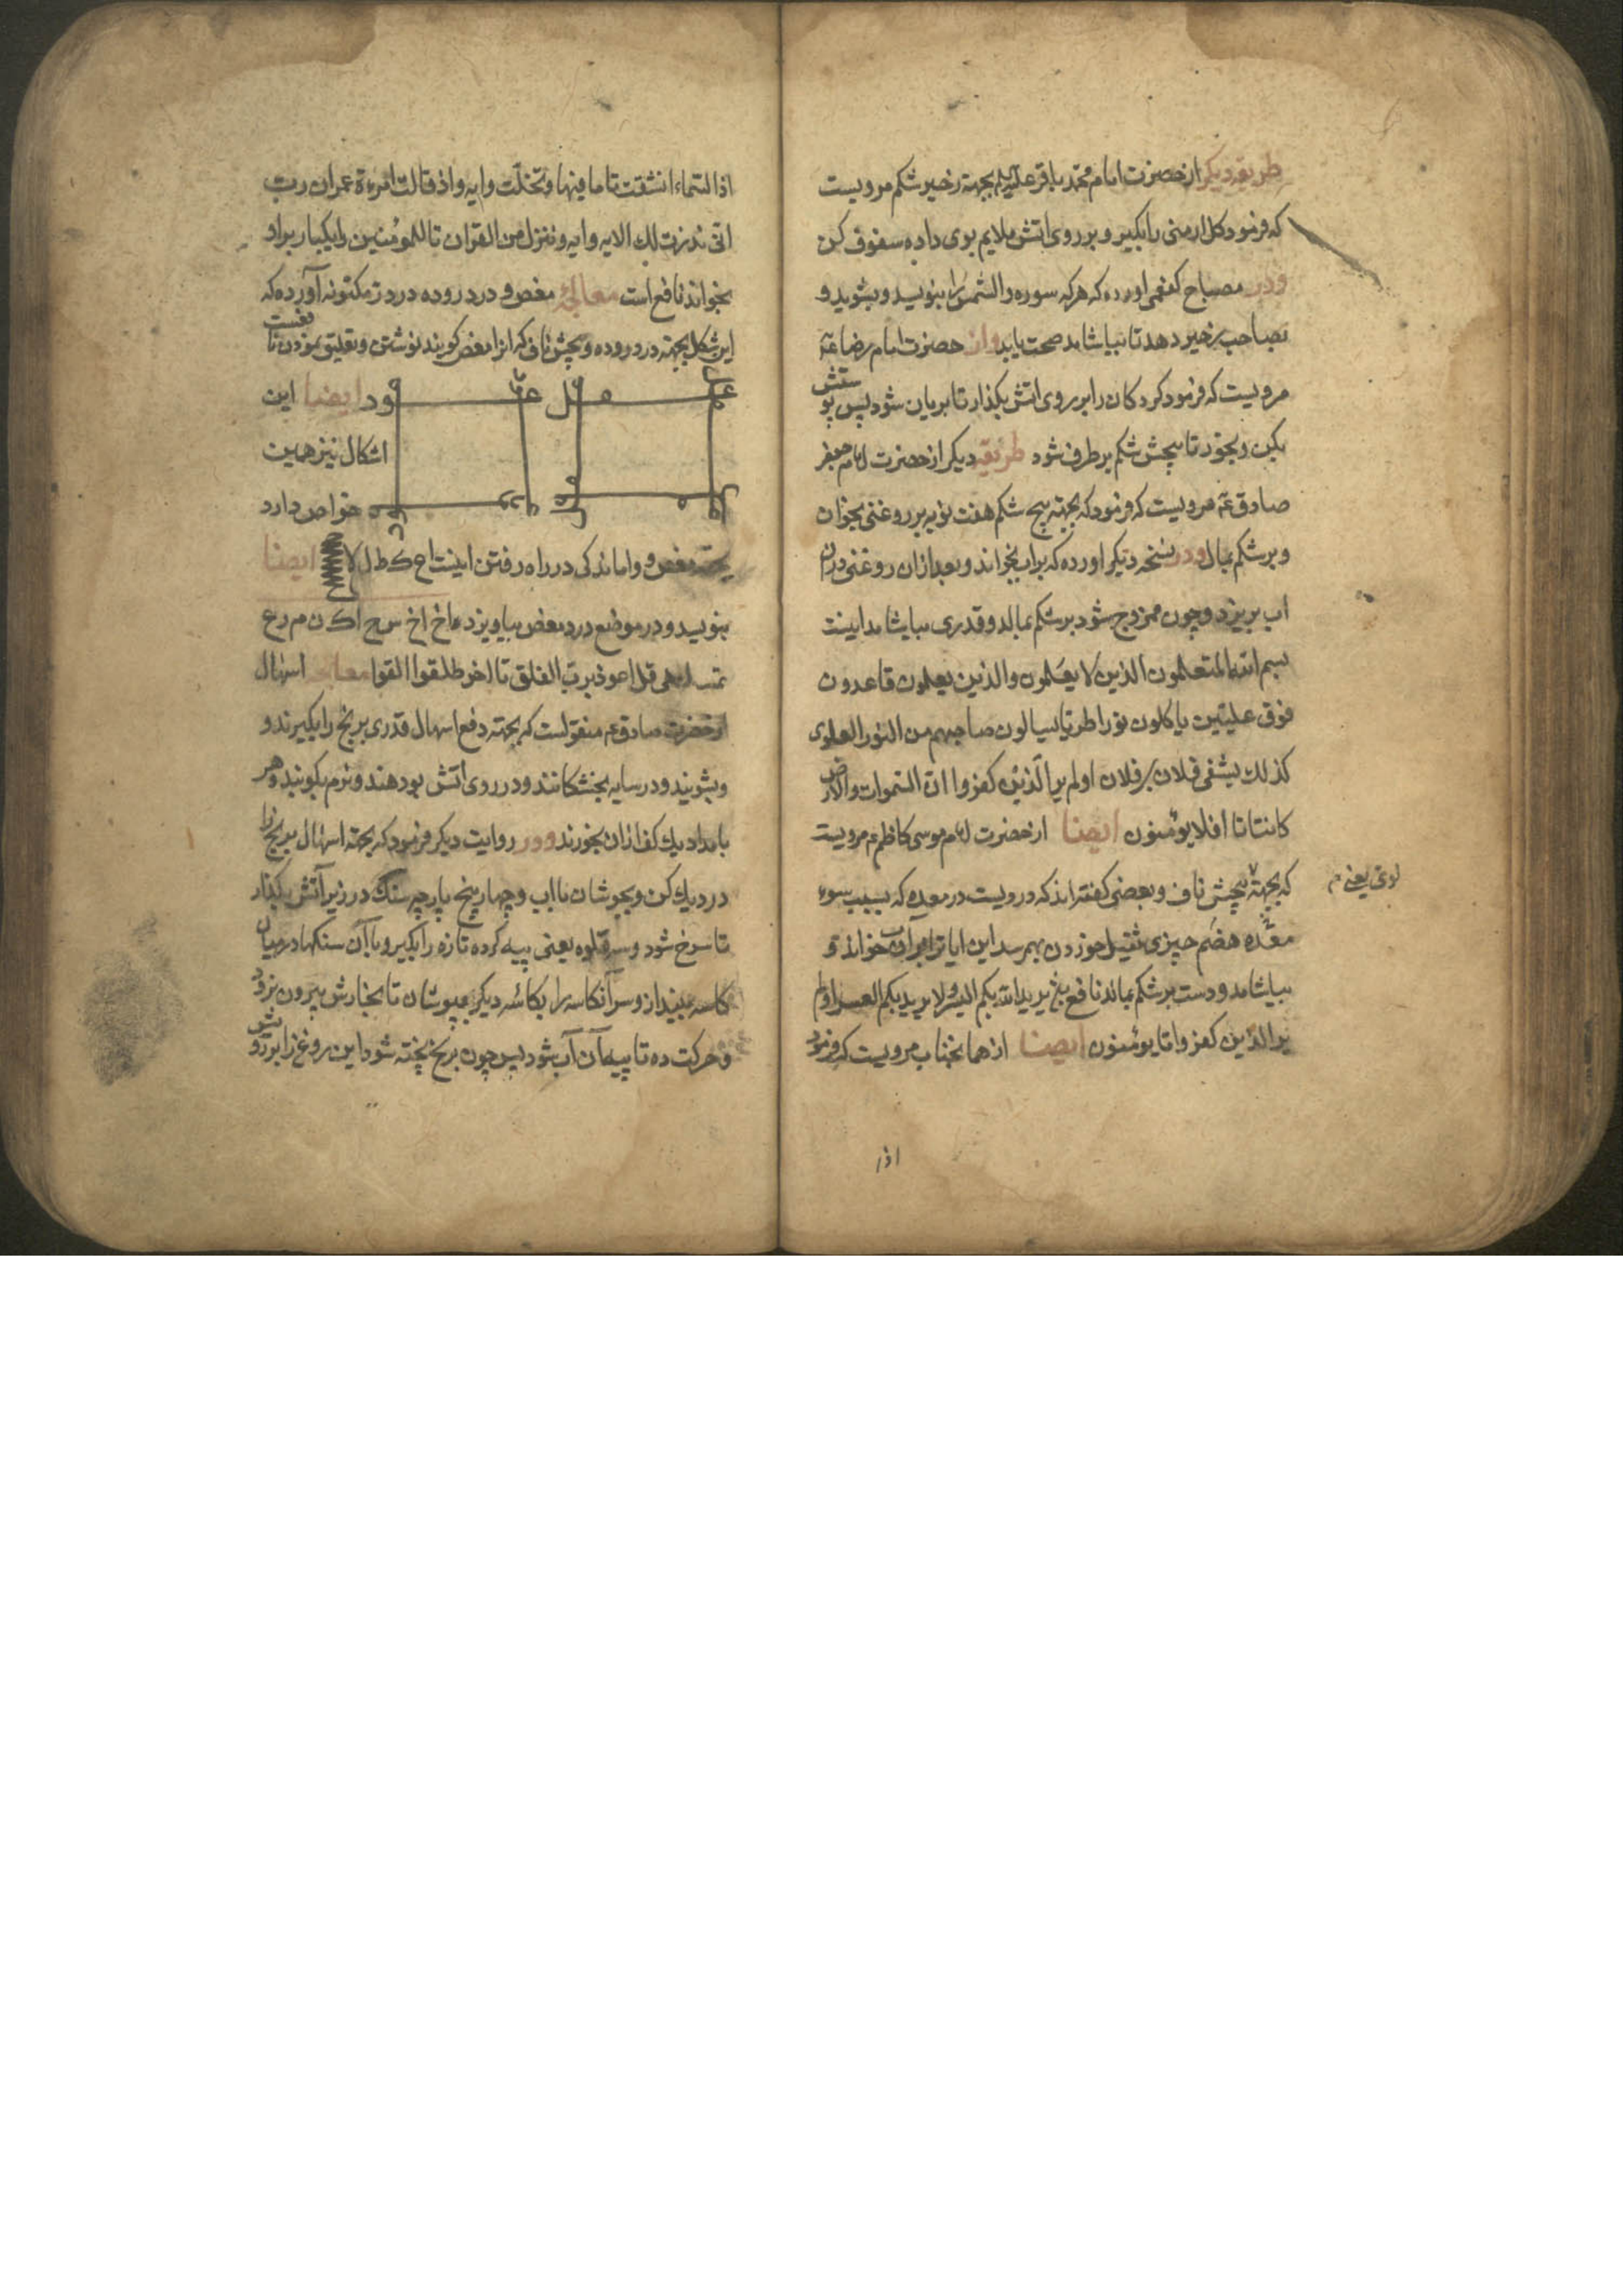 طریقه دیکر از حضرت امام محمد باقر علیه بجهته زحیر شکم مرویست
که فرمود کل ارمنی را بکیر و بر روی اتش ملایم بوی داده سفوف کن
و در مصباح کفعمی اورده که هر که سوره والشمس را بنویسد و بشوید و
بصاحب زحیر دهد تا بیاشامد صحت یابد و از حضرت امام رضا عم
مرویست که فرمود کردکان را بر روی اتش بکذار تا بریان شود پس پوستش
بکن و بخور تا پیچش شکم برطرف شود طریقه دیکر از حضرت امام جعفر
صادق عم مرویست که فرمود که بجهته پیچ شکم هفت نوبه بر روغنی بخوان
و بر شکم بمال و در نسخه دیکر اورده که بر اب بخواند و بعد ازان روغنی دران
اب بریزد و چون ممزوج شود بر شکم بمالد و قدری بیاشامد اینست
بسم الله المتعلمون الذین لا یعلمون والذین یعلمون قاعدون
فوق علیین یاکلون نورا طریا یسالون صاحبهم من النور العلوی
کذلک یشفی فلان بر فلان اولم یر الذین کفروا ان السموات والارض
کانتا تا افلا یؤمنون ایضا از حضرت امام موسی کاظم ع مرویست
که بجهته پیچش ناف و بعضی کفته اند که دردیست در معده که بسبب سوء
لوی یعنی
معده هضم چیزی ثقیل خوردن بهمرسد این ایات را بر آب خواند و
بیاشامد و دست بر شکم بمالد نافع یرید الله بکم الیسر ولا یرید بکم العسر اولم
یر الذین کفروا تا یؤمنون ایضا از همانجناب مرویست که فرمود
اذا
اذا السماء انشقت تا ما فیها و تخلت و ایه و اذ قالت امرءة عمران رب
انی نذرت لک الایه و ایه و ننزل من القران تا للمؤمنین را یکبار بر او
بخواند نافع است معالجهٔ مغص و درد روده در درّ مکنونه آورده که
این شکل بجهته درد روده و پیچش ناف که انرا مغص کویند نوشتن و تعلیق نمودن نافعست
ود ایضا این
اشکال نیز همین
خواص دارد
بجهته مغص و واماندکی در راه رفتن اینست اح ک ط ل لا ایضا
بنویسد و در موضع درد مغص بیاویزد
قل اعوذ برب الفلق تا اخر معالجه اسهال
از حضرت صادق عم منقولست که بجهته دفع اسهال قدری برنج را بکیرند و
و بشویند و در سایه بخشکانند و در روی اتش بو دهند و نرم بکوبند و هر
بامداد یک کف ازان بخورند و در روایت دیکر فرمود که بجهته اسهال برنج را
در دیک کن و بجوشان با اب و چهار پنج پارچه سنک در زیر آتش بکذار
تا سرخ شود و سر قلوه یعنی پیه کرده تازه را بکیر و با آن سنکها در میان
کاسه بینداز و سر آنکاسه را بکاسه دیکر بپوشان تا بخارش بیرون نرود
و حرکت ده تا پیه آن آب شود پس چون برنج پخته شود این روغن را بر رویش